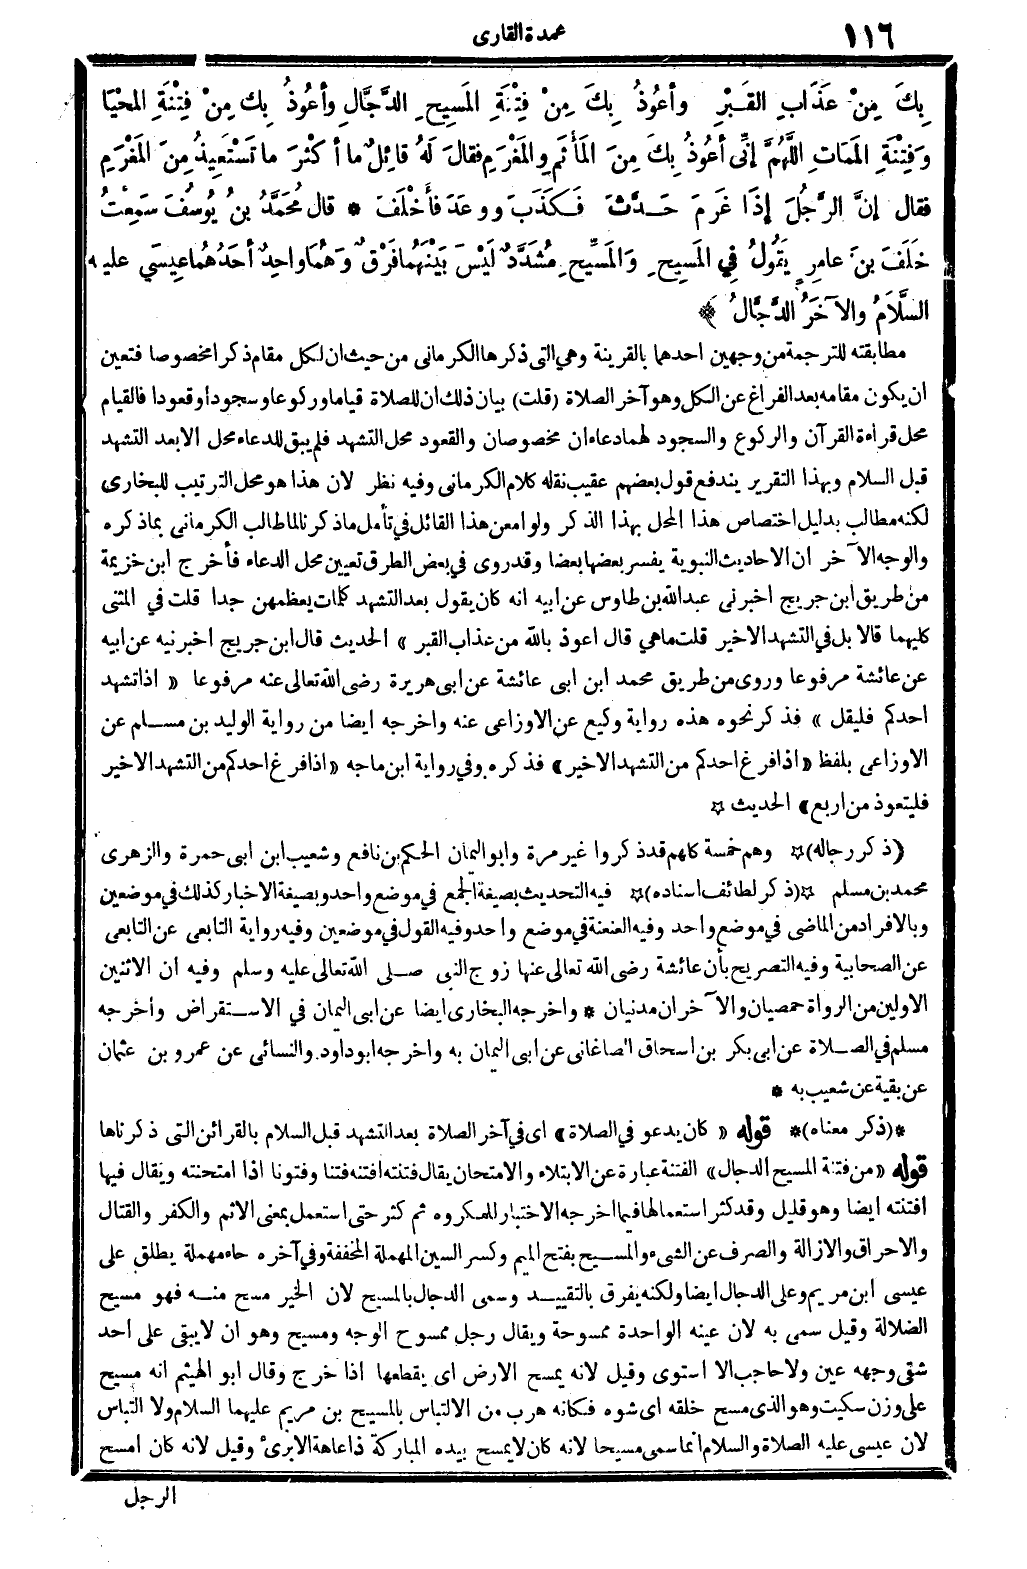 ١١٦
عمدة القارى
بِكَ مِنْ عَذَابِ القَبْرِ وأعُوذُ بِكَ مِنْ فِتْنَةِ المَسِيحِ الدَّجَّالِ وأعُوذُ بِكَ مِنْ فِتْنَةِ المَحْيَا
وَفِتْنَةِ المَمَاتِ اللَّهُمَّ إنِّى أعُوذُ بِكَ مِنَ المَأْثَمِ والمَغْرَمِ فقالَ لَهُ قائِلٌ ما أكْثَرَ ما تَسْتَعِيذُ مِنَ المَغْرَمِ
فقال إنَّ الرَّجُلَ إذَا غَرِمَ حَدَّثَ فَكَذَبَ ووعَدَ فأَخْلَفَ * قال مُحَمَّدُ بنُ يُوسُفَ سَمِعْتُ
خَلَفَ بنَ عامِرٍ يَقُولُ فِي المَسِيحِ وَالمَسِّيحِ مُشَدَّدٌ لَيْسَ بَيْنَهُمَا فَرْقٌ وَهُمَا واحِدٌ أحَدُهُما عِيسَي عليه
السَّلَامُ والآخَرُ الدَّجَّالُ ﴾
مطابقته للترجمة من وجهين احدهما بالقرينة وهي التى ذكرها الكرمانى من حيث ان لكل مقام ذكرا مخصوصا فتعين
ان يكون مقامه بعد الفراغ عن الكل وهو آخر الصلاة (قلت) بيان ذلك ان للصلاة قياما وركوعا وسجودا وقعودا فالقيام
محل قراءة القرآن والركوع والسجود لهما دعاءان مخصوصان والقعود محل التشهد فلم يبق للدعاء محل الا بعد التشهد
قبل السلام وبهذا التقرير يندفع قول بعضهم عقيب نقله كلام الكرمانى وفيه نظر لان هذا هو محل الترتيب للبخارى
لكنه مطالب بدليل اختصاص هذا المحل بهذا الذكر ولو امعن هذا القائل في تأمل ما ذكرنا لما طالب الكرمانى بما ذكره
والوجه الآخر ان الاحاديث النبوية يفسر بعضها بعضا وقد روى في بعض الطرق تعيين محل الدعاء فأخرج ابن خزيمة
من طريق ابن جريج اخبرنى عبدالله بن طاوس عن ابيه انه كان يقول بعد التشهد كلمات يعظمهن جدا قلت في المثنى
كليهما قالا بل في التشهد الاخير قلت ماهي قال اعوذ بالله من عذاب القبر » الحديث قال ابن جريج اخبرنيه عن ابيه
عن عائشة مرفوعا وروى من طريق محمد ابن ابى عائشة عن ابى هريرة رضى الله تعالى عنه مرفوعا « اذا تشهد
احدكم فليقل » فذكر نحوه هذه رواية وكيع عن الاوزاعى عنه واخرجه ايضا من رواية الوليد بن مسلم عن
الاوزاعى بلفظ «اذا فرغ احدكم من التشهد الاخير» فذكره وفي رواية ابن ماجه «اذا فرغ احدكم من التشهد الاخير
فليتعوذ من اربع» الحديث ☆
(ذكر رجاله)☆ وهم خمسة كلهم قد ذكروا غير مرة وابو اليمان الحكم بن نافع وشعيب ابن ابى حمزة والزهرى
محمد بن مسلم ☆(ذكر لطائف اسناده)☆ فيه التحديث بصيغة الجمع في موضع واحد وبصيغة الاخبار كذلك في موضعين
وبالافراد من الماضى في موضع واحد وفيه العنعنة في موضع واحد وفيه القول في موضعين وفيه رواية التابعى عن التابعى
عن الصحابية وفيه التصريح بأن عائشة رضى الله تعالى عنها زوج النبى صلى الله تعالى عليه وسلم وفيه ان الاثنين
الاولين من الرواة حمصيان والآخران مدنيان * واخرجه البخارى ايضا عن ابى اليمان في الاستقراض وأخرجه
مسلم في الصلاة عن ابى بكر بن اسحاق الصاغانى عن ابى اليمان به واخرجه ابو داود والنسائى عن عمرو بن عثمان
عن بقية عن شعيب به *
*(ذكر معناه)* قوله « كان يدعو في الصلاة» اى في آخر الصلاة بعد التشهد قبل السلام بالقرائن التى ذكرناها
قوله «من فتنة المسيح الدجال» الفتنة عبارة عن الابتلاء والامتحان يقال فتنته افتنه فتنا وفتونا اذا امتحنته ويقال فيها
افتنته ايضا وهو قليل وقد كثر استعمالها فيما اخرجه الاختبار للمكروه ثم كثر حتى استعمل بمعنى الاثم والكفر والقتال
والاحراق والازالة والصرف عن الشىء والمسيح بفتح الميم وكسر السين المهملة المخففة وفي آخره حاء مهملة يطلق على
عيسى ابن مريم وعلى الدجال ايضا ولكنه يفرق بالتقييد وسمى الدجال بالمسيح لان الخير مسح منه فهو مسيح
الضلالة وقيل سمى به لان عينه الواحدة ممسوحة ويقال رجل ممسوح الوجه ومسيح وهو ان لا يبقى على احد
شقى وجهه عين ولا حاجب الا استوى وقيل لانه يمسح الارض اى يقطعها اذا خرج وقال ابو الهيثم انه مسيح
على وزن سكيت وهو الذى مسح خلقه اى شوه فكانه هرب من الالتباس بالمسيح بن مريم عليهما السلام ولا التباس
لان عيسى عليه الصلاة والسلام انما سمى مسيحا لانه كان لا يمسح بيده المباركة ذا عاهة الا برئ وقيل لانه كان امسح
الرجل